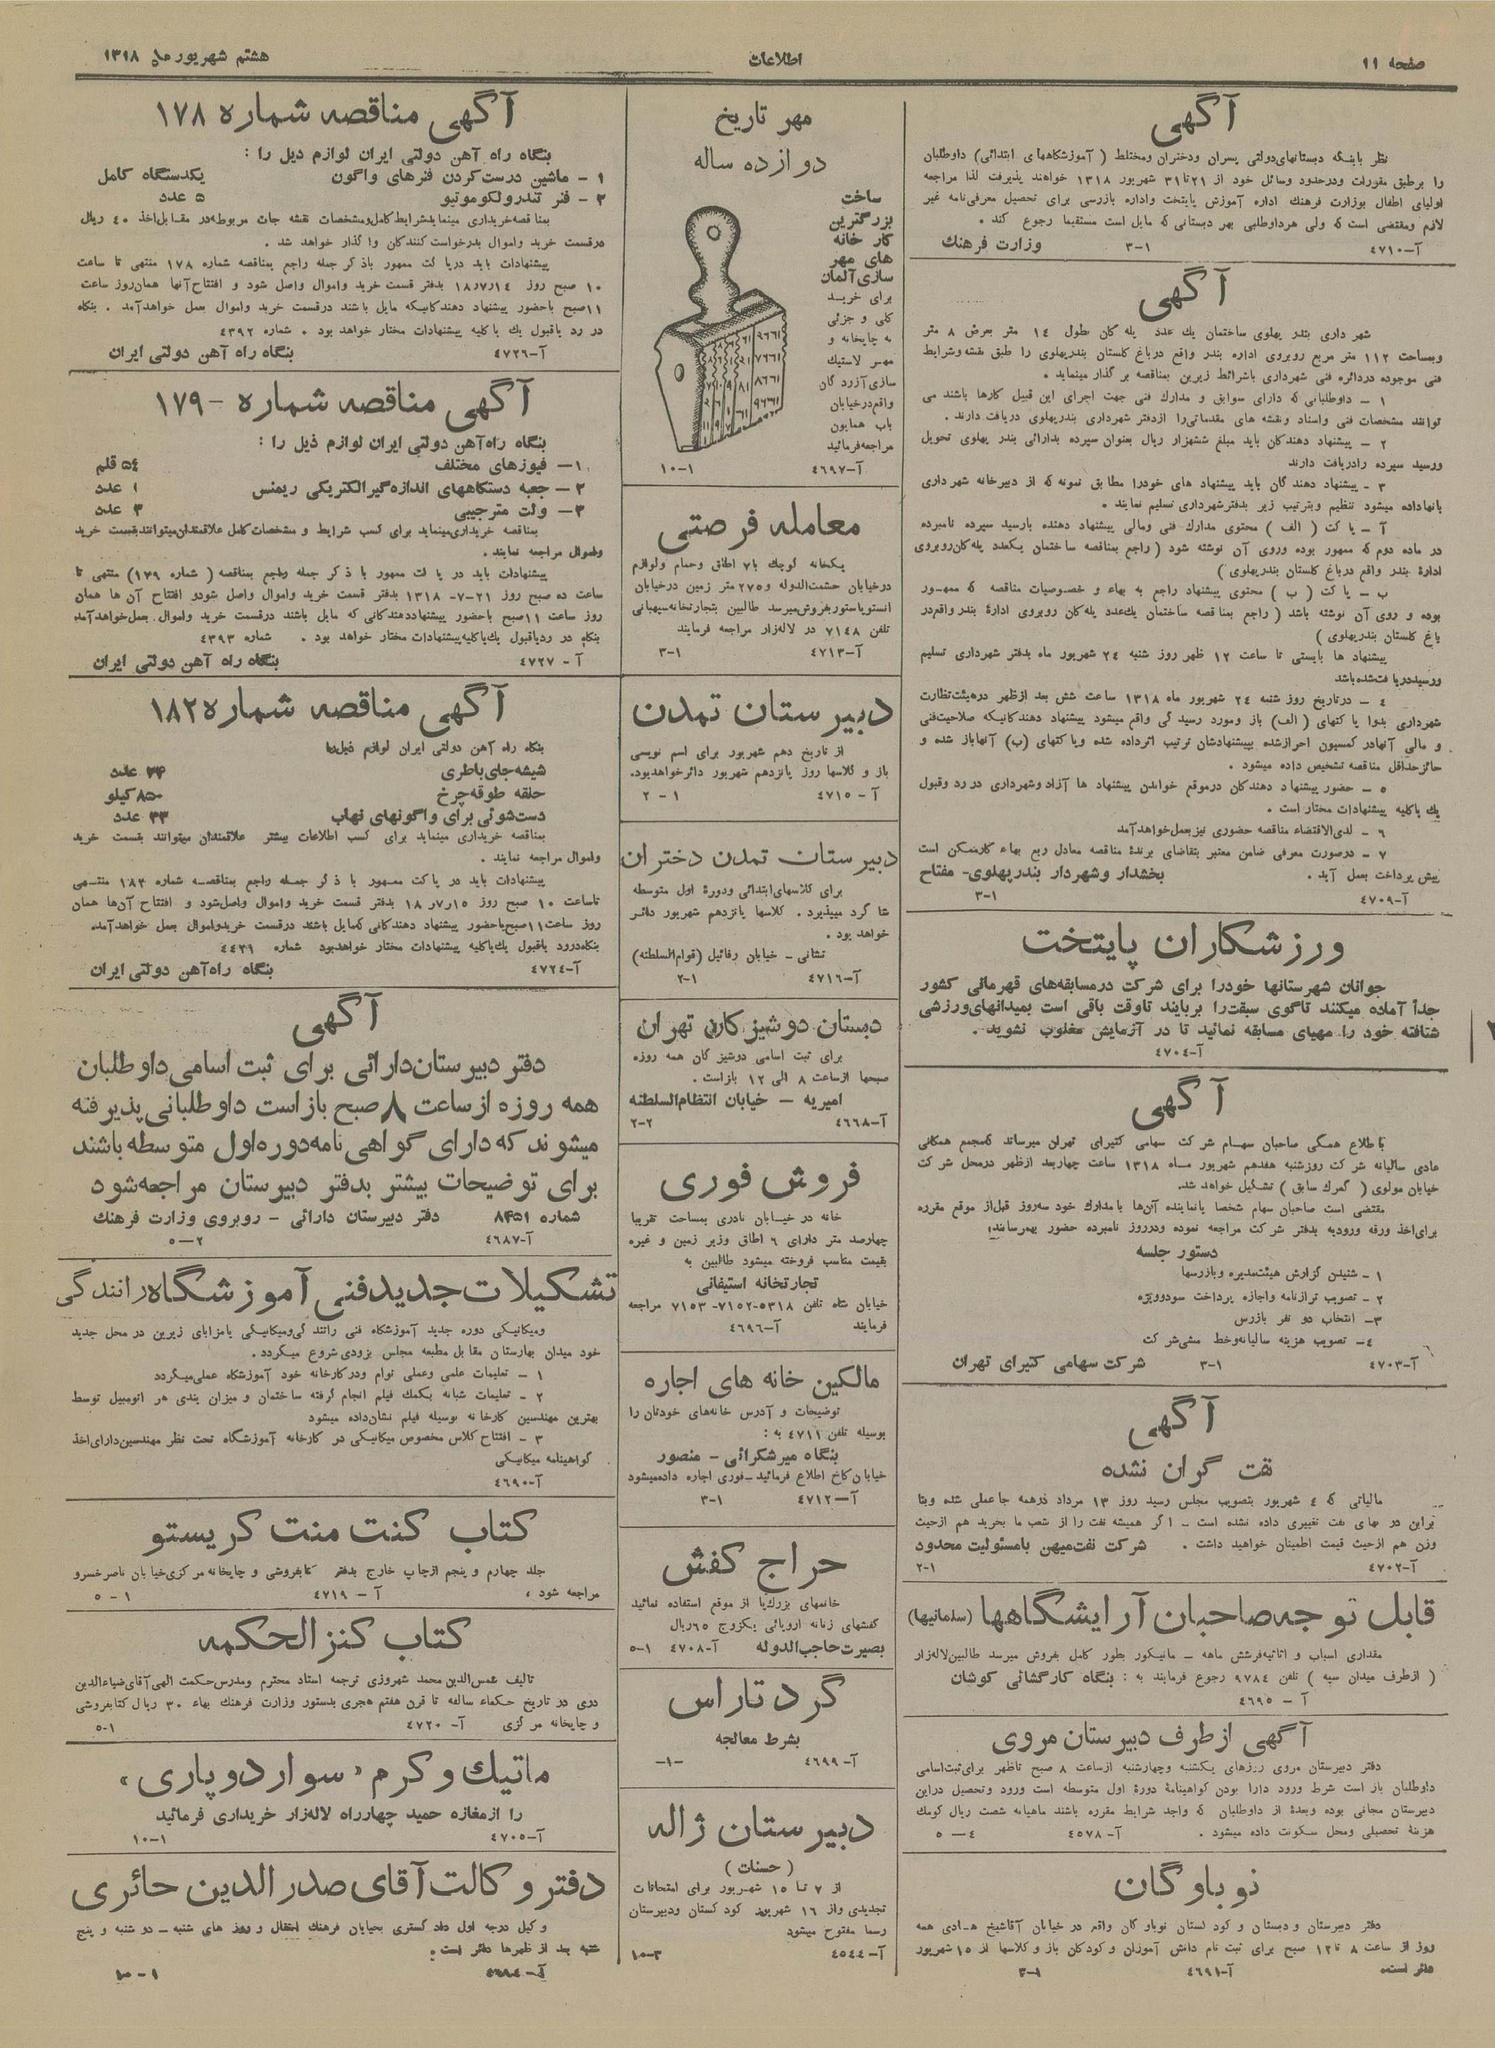 صفحه ۱۱
اطلاعات
هشتم شهریور ماه ۱۳۱۸
آگهی
نظر باینکه دبستانهای دولتی پسران ودختران ومختلط ( آموزشگاههای ابتدائی ) داوطلبان
را برطبق مقررات ودرحدود وسائل خود از ۲۱ تا ۳۱ شهریور ۱۳۱۸ خواهند پذیرفت لذا مراجعه
اولیای اطفال بوزارت فرهنك اداره آموزش پایتخت واداره بازرسی برای تحصیل معرفی‌نامه غیر
لازم ومقتضی است که ولی هرداوطلبی بهر دبستانی که مایل است مستقیما رجوع کند .
آ-۴۷۱۰ ۱-۳ وزارت فرهنك
آگهی
شهرداری بندر پهلوی ساختمان یك عدد پله کان بطول ۱۴ متر بعرض ۸ متر
وبمساحت ۱۱۲ متر مربع روبروی اداره بندر واقع درباغ گلستان بندرپهلوی را طبق نقشه وشرایط
فنی موجوده دردائره فنی شهرداری باشرائط زیرین بمناقصه برگذار مینماید .
۱ - داوطلبانی که دارای سوابق و مدارك فنی جهت اجرای این قبیل کارها باشند می
توانند مشخصات فنی واسناد ونقشه های مقدماتی‌را ازدفتر شهرداری بندرپهلوی دریافت دارند .
۲ - پیشنهاد دهندگان باید مبلغ ششهزار ریال بعنوان سپرده بدارائی بندر پهلوی تحویل
ورسید سپرده رادریافت دارند
۳ - پیشنهاد دهندگان باید پیشنهاد های خودرا مطابق نمونه که از دبیرخانه شهرداری
بانهاداده میشود تنظیم وبترتیب زیر بدفترشهرداری تسلیم نمایند .
آ - پاکت ( الف ) محتوی مدارك فنی ومالی پیشنهاد دهنده بارسید سپرده نامبرده
در ماده دوم که ممهور بوده وروی آن نوشته شود ( راجع بمناقصه ساختمان یکعدد پله‌کان روبروی
ادارهٔ بندر واقع درباغ گلستان بندرپهلوی )
ب - پاکت ( ب ) محتوی پیشنهاد راجع به بهاء و خصوصیات مناقصه که ممهور
بوده و روی آن نوشته باشد ( راجع بمناقصه ساختمان یك‌عدد پله‌کان روبروی ادارهٔ بندر واقع‌در
باغ گلستان بندرپهلوی )
پیشنهاد ها بایستی تا ساعت ۱۲ ظهر روز شنبه ۲۴ شهریور ماه بدفتر شهرداری تسلیم
ورسیددریافت‌شده‌باشد
۴ - درتاریخ روز شنبه ۲۴ شهریور ماه ۱۳۱۸ ساعت شش بعد ازظهر درهیئت‌نظارت
شهرداری بدوا پاکتهای (الف) باز ومورد رسیدگی واقع میشود پیشنهاد دهندکانیکه صلاحیت‌فنی
و مالی آنهادر کمسیون احرازشده بپیشنهادشان ترتیب اثرداده شده وپاکتهای (ب) آنهاباز شده و
حائزحداقل مناقصه تشخیص داده میشود .
۵ - حضور پیشنهاد دهندکان درموقع خواندن پیشنهاد ها آزاد وشهرداری در رد وقبول
یك یاکلیه پیشنهادات مختار است .
۶ - لدی‌الاقتضاء مناقصه حضوری نیز بعمل‌خواهدآمد
۷ - درصورت معرفی ضامن معتبر بتقاضای برندهٔ مناقصه معادل ربع بهاء کارممکن است
پیش پرداخت بعمل آید . بخشدار وشهردار بندرپهلوی- مفتاح
آ-۴۷۰۹ ۱-۳
ورزشکاران پایتخت
جوانان شهرستانها خودرا برای شرکت درمسابقه‌های قهرمانی کشور
جداً آماده میکنند تاگوی سبقت‌را بربایند تاوقت باقی است بمیدانهای‌ورزشی
شتافته خود را مهیای مسابقه نمائید تا در آزمایش مغلوب نشوید .
آ-۴۷۰۴
آگهی
باطلاع همگی صاحبان سهام شرکت سهامی کتیرای تهران میرساند که‌مجمع همگانی
عادی سالیانه شرکت روزشنبه هفدهم شهریور ماه ۱۳۱۸ ساعت چهاربعد ازظهر درمحل شرکت
خیابان مولوی ( گمرك سابق ) تشکیل خواهد شد.
مقتضی است صاحبان سهام شخصا یانماینده آن‌ها بامدارك خود سه‌روز قبل‌از موقع مقرره
برای‌اخذ ورقه ورودیه بدفتر شرکت مراجعه نموده ودرروز نامبرده حضور بهمرسانند؛
دستور جلسه
۱ - شنیدن گزارش هیئت‌مدیره وبازرسها
۲ - تصویب ترازنامه واجازه پرداخت سودویژه
۳- انتخاب دو نفر بازرس
۴- تصویب هزینه سالیانه‌وخط مشی‌شرکت
آ-۴۷۰۳ ۱-۳ شرکت سهامی کتیرای تهران
آگهی
نفت گران نشده
مالیاتی که ۴ شهریور بتصویب مجلس رسید روز ۱۳ مرداد درهمه جاعملی شده وبنا
براین در بهای نفت تغییری داده نشده است - اگر همیشه نفت را از شعب ما بخرید هم ازحیث
وزن هم ازحیث قیمت اطمینان خواهید داشت . شرکت نفت‌میهن بامسئولیت محدود
آ-۴۷۰۲ ۱-۲
قابل توجه‌صاحبان آرایشگاهها (سلمانیها)
مقداری اسباب و اثاثیه‌فرشش ماهه - مانیکور بطور کامل بفروش میرسد طالبین‌لاله‌زار
( ازطرف میدان سپه ) تلفن ۹۷۸۴ رجوع فرمایند به : بنگاه کارگشائی کوشان
آ - ۴۶۹۵
آگهی ازطرف دبیرستان مروی
دفتر دبیرستان مروی روزهای یکشنبه وچهارشنبه ازساعت ۸ صبح تاظهر برای‌ثبت‌اسامی
داوطلبان باز است شرط ورود دارا بودن گواهینامهٔ دورهٔ اول متوسطه است ورود وتحصیل دراین
دبیرستان مجانی بوده وبعدهٔ از داوطلبان که واجد شرایط مقرره باشند ماهیانه شصت ریال کومك
هزینهٔ تحصیلی ومحل سکونت داده میشود . آ- ۴۵۷۸ ۴-۵
نوباوگان
دفتر دبیرستان و دبستان و کودکستان نوباوگان واقع در خیابان آقاشیخ هادی همه
روز از ساعت ۸ تا۱۲ صبح برای ثبت نام دانش آموزان و کودکان باز و کلاسها از ۱۵ شهریور
دائر است. آ-۴۶۹۱ ۱-۳
مهر تاریخ
دوازده ساله
ساخت
بزرگترین
کارخانه
های مهر
سازی‌آلمان
برای خرید
کلی و جزئی
به چاپخانه و
مهر لاستیك
سازی‌آزردگان
واقع‌درخیابان
باب همایون
مراجعه‌فرمائید
آ-۴۶۹۷ ۱-۱۰
معامله فرصتی
یکخانه کوچك با۷ اطاق وحمام ولوازم
درخیابان حشمت‌الدوله و۲۷۵ متر زمین درخیابان
انستوپاستور بفروش‌میرسد طالبین بتجارتخانه‌سیهبانی
تلفن ۷۱۴۸ در لاله‌زار مراجعه فرمایند
آ-۴۷۱۳ ۱-۳
دبیرستان تمدن
از تاریخ دهم شهریور برای اسم نویسی
باز و کلاسها روز پانزدهم شهریور دائرخواهدبود.
آ - ۴۷۱۵ ۱ - ۲
دبیرستان تمدن دختران
برای کلاسهای‌ابتدائی ودورهٔ اول متوسطه
شاگرد میپذیرد . کلاسها پانزدهم شهریور دائر
خواهد بود .
نشانی - خیابان رفائیل (قوام‌السلطنه)
آ-۴۷۱۶ ۱-۲
دبستان دوشیزگان تهران
برای ثبت اسامی دوشیزگان همه روزه
صبحها ازساعت ۸ الی ۱۲ بازاست .
امیریه - خیابان انتظام‌السلطنه
آ-۴۶۶۸ ۲-۲
فروش فوری
خانه در خیابان نادری بمساحت تقریبا
چهارصد متر دارای ۶ اطاق وزیر زمین و غیره
بقیمت مناسب فروخته میشود طالبین به
تجارتخانه استیفانی
خیابان شاه تلفن ۵۳۱۸-۷۱۵۲-۷۱۵۳ مراجعه
فرمایند آ-۴۶۹۶
مالکین خانه های اجاره
توضیحات و آدرس خانه‌های خودتان را
بوسیله تلفن ۴۷۱۱ به :
بنگاه میرشکرائی - منصور
خیابان‌کاخ اطلاع فرمائید-فوری اجاره داده‌میشود
آ-۴۷۱۲ ۱-۳
حراج کفش
خانمهای بزرك‌پا از موقع استفاده نمائید
کفشهای زنانه اروپائی یکزوج ۶۵ریال
بصیرت‌حاجب‌الدوله آ-۴۷۰۸ ۱-۵
گرد تاراس
بشرط معالجه
آ-۴۶۹۹ -۱-
دبیرستان ژاله
( حسنات )
از ۷ تا ۱۵ شهریور برای امتحانات
تجدیدی واز ۱۶ شهریور کودکستان ودبیرستان
رسما مفتوح میشود
آ-۴۵۴۴ ۳-۱۰
آگهی مناقصه شماره ۱۷۸
بنگاه راه آهن دولتی ایران لوازم ذیل را :
۱ - ماشین درست‌کردن فنرهای واگون یکدستگاه کامل
۲ - فنر تندرولکوموتیو ۵ عدد
بمناقصه‌خریداری مینماید شرایط کامل‌ومشخصات نقشه جات مربوطه‌در مقابل‌اخذ ۴۰ ریال
درقسمت خرید واموال بدرخواست‌کنندگان واگذار خواهد شد .
پیشنهادات باید درپاکت ممهور باذکر جمله راجع بمناقصه شماره ۱۷۸ منتهی تا ساعت
۱۰ صبح روز ۱۸٫۷٫۱۴ بدفتر قسمت خرید واموال واصل شود و افتتاح‌آنها همان‌روز ساعت
۱۱صبح باحضور پیشنهاد دهندکانیکه مایل باشند درقسمت خرید واموال بعمل خواهدآمد . بنگاه
در رد یاقبول یك یاکلیه پیشنهادات مختار خواهد بود . شماره ۴۳۹۲
آ-۴۷۲۶ بنگاه راه آهن دولتی ایران
آگهی مناقصه شماره - ۱۷۹
بنگاه راه‌آهن دولتی ایران لوازم ذیل را :
۱- فیوزهای مختلف ۵۴ قلم
۲- جعبه دستگاههای اندازه‌گیرالکتریکی ریمنس ۱ عدد
۳- ولت مترجیبی ۳ عدد
بمناقصه خریداری‌مینماید برای کسب شرایط و مشخصات‌کامل علاقمندان‌میتوانندبقسمت خرید
واموال مراجعه نمایند .
پیشنهادات باید در پاکت ممهور با ذکر جمله راجع بمناقصه ( شماره ۱۷۹) منتهی تا
ساعت ده صبح روز ۲۱-۷- ۱۳۱۸ بدفتر قسمت خرید واموال واصل شودو افتتاح آن ها همان
روز ساعت ۱۱صبح باحضور پیشنهاددهندکانی که مایل باشند درقسمت خرید واموال بعمل‌خواهدآمد
بنگاه در ردیاقبول یك‌یاکلیه‌پیشنهادات مختار خواهد بود . شماره ۴۳۹۳
آ - ۴۷۲۷ بنگاه راه آهن دولتی ایران
آگهی مناقصه شماره۱۸۲
بنگاه راه آهن دولتی ایران لوازم ذیل‌را
شیشه‌جای‌باطری ۲۴ عدد
حلقه طوقه‌چرخ ۸۵۰کیلو
دست‌شوئی برای واگونهای نهاب ۳۳ عدد
بمناقصه خریداری مینماید برای کسب اطلاعات بیشتر علاقمندان میتوانند بقسمت خرید
واموال مراجعه نمایند .
پیشنهادات باید در پاکت ممهور با ذکر جمله راجع بمناقصه شماره ۱۸۲ منتهی
تاساعت ۱۰ صبح روز ۱۵٫۷٫۱۸ بدفتر قسمت خرید واموال واصل‌شود و افتتاح آن‌ها همان
روز ساعت۱۱صبح‌باحضور پیشنهاد دهندکانی که‌مایل باشند درقسمت خریدواموال بعمل خواهدآمد.
بنگاه‌دررد یاقبول یك‌یاکلیه پیشنهادات مختار خواهدبود شماره ۴۴۲۹
آ-۴۷۲۴ بنگاه راه‌آهن دولتی ایران
آگهی
دفتر دبیرستان‌دارائی برای ثبت اسامی داوطلبان
همه روزه ازساعت ۸ صبح بازاست داوطلبانی پذیرفته
میشوند که دارای گواهی نامه‌دوره‌اول متوسطه باشند
برای توضیحات بیشتر بدفتر دبیرستان مراجعه‌شود
شماره ۸۴۵۱ دفتر دبیرستان دارائی - روبروی وزارت فرهنك
آ-۴۶۸۷ ۲-۵
تشکیلات جدیدفنی آموزشگاه‌رانندگی
ومیکانیکی دوره جدید آموزشگاه فنی رانندگی‌ومیکانیکی بامزایای زیرین در محل جدید
خود میدان بهارستان مقابل مطبعه مجلس بزودی شروع میگردد .
۱ - تعلیمات علمی وعملی توام ودرکارخانه خود آموزشگاه عملی‌میگردد
۲ - تعلیمات شبانه بکمك فیلم انجام گرفته ساختمان و میزان بندی هر اتومبیل توسط
بهترین مهندسین کارخانه بوسیله فیلم نشان‌داده میشود
۳ - افتتاح کلاس مخصوص میکانیکی در کارخانه آموزشگاه تحت نظر مهندسین‌دارای‌اخذ
گواهینامه میکانیکی
آ-۴۶۹۰
کتاب کنت منت کریستو
جلد چهارم و پنجم ازچاپ خارج بدفتر کتابفروشی و چاپخانه مرکزی‌خیابان ناصرخسرو
مراجعه شود ، آ - ۴۷۱۹ ۱ - ۵
کتاب کنزالحکمه
تالیف شمس‌الدین محمد شهروزی ترجمه استاد محترم ومدرس‌حکمت الهی آقای ضیاءالدین
دری در تاریخ حکماء سالفه تا قرن هفتم هجری بدستور وزارت فرهنك بهاء ۳۰ ریال کتابفروشی
و چاپخانه مرکزی آ- ۴۷۲۰ ۱-۵
ماتیك و کرم «سواردوپاری»
را ازمغازه حمید چهارراه لاله‌زار خریداری فرمائید
آ-۴۷۰۵ ۱-۱۰
دفتر وکالت آقای صدرالدین حائری
وکیل درجه اول دادگستری بخیابان فرهنك انتقال و روز های شنبه - دو شنبه و پنج
شنبه بعد از ظهرها دائر است .
۱ - ۱۰